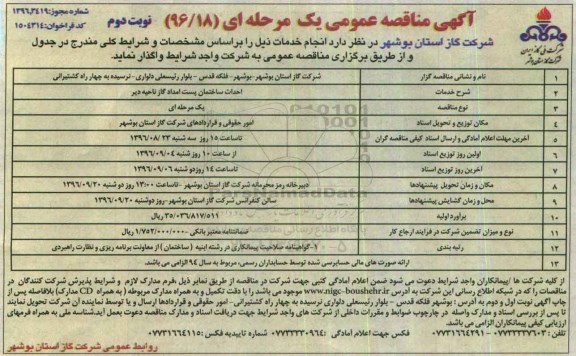 آگهی مناقصه عمومی یک مرحله ای (۹۶/۱۸) نوبت دوم
شماره مجوز: ۱۳۹۶.۳۴۱۹
کد فراخوان: ۱۵۰۴۳۱۴
شرکت گاز استان بوشهر در نظر دارد انجام خدمات ذیل را براساس مشخصات و شرایط کلی مندرج در جدول
و از طریق برگزاری مناقصه عمومی به شرکت واجد شرایط واگذار نماید.
۱ نام و نشانی مناقصه گزار شرکت گاز استان بوشهر -بوشهر- فلکه قدس - بلوار رئیسعلی دلواری - نرسیده به چهار راه کشتیرانی
۲ شرح خدمات احداث ساختمان پست امداد گاز ناحیه دیر
۳ نوع مناقصه یک مرحله ای
۴ مکان توزیع و تحویل اسناد امور حقوقی و قراردادهای شرکت گاز استان بوشهر
۵ آخرین مهلت اعلام آمادگی و ارسال اسناد کیفی مناقصه گران تا ساعت ۱۵ روز سه شنبه ۱۳۹۶/۰۸/۲۳
۶ اولین روز توزیع اسناد از ساعت ۱۰ روز شنبه ۱۳۹۶/۰۹/۰۴
۷ آخرین روز توزیع اسناد تا ساعت ۱۴ روز دوشنبه ۱۳۹۶/۰۹/۰۶
۸ مکان و زمان تحویل پیشنهادها دبیرخانه رمز محرمانه شرکت گاز استان بوشهر -تا ساعت ۱۳:۰۰ روز دوشنبه ۱۳۹۶/۰۹/۲۰
۹ محل و زمان گشایش پیشنهادها سالن کنفرانس شرکت گاز استان بوشهر -روز دوشنبه ۱۳۹۶/۰۹/۲۰
۱۰ برآورد اولیه ۳۵/۰۳۶/۸۱۷/۵۱۱ ریال
۱۱ نوع و میزان تضمین شرکت در فرایند ارجاع کار ضمانتنامه معتبر بانکی ۱/۷۵۲/۰۰۰/۰۰۰ ریال
۱۲ رتبه بندی ۱-گواهینامه صلاحیت پیمانکاری در رشته ابنیه (ساختمان) از معاونت برنامه ریزی و نظارت راهبردی
۱۳ ارائه صورت های مالی حسابرسی شده توسط حسابداران رسمی، مربوط به سال ۹۴ الزامی می باشد.
از کلیه شرکت ها / پیمانکاران واجد شرایط دعوت می شود ضمن اعلام آمادگی کتبی جهت شرکت در مناقصه از طریق نمابر ذیل ،فرم مدارک لازم و شرایط پذیرش شرکت کنندگان در
مناقصات را که در شبکه اطلاع رسانی این شرکت به آدرس www.nigc-boushehr.ir موجود می باشد را با دقت تکمیل و به همراه مدارک مربوطه (به همراه CD مدارک) بلافاصله پس از
چاپ آگهی نوبت اول و دوم به آدرس : بوشهر فلکه قدس - بلوار رئیسعلی دلواری نرسیده به چهار راه کشتیرانی- امور حقوقی و قراردادها ارسال و یا توسط نماینده آن شرکت تحویل نمایند
تا پس از بررسی اسناد و مدارک واصله در چارچوب ضوابط و مقررات داخلی از شرکت های واجد شرایط جهت دریافت اسناد و مدارک مناقصه دعوت بعمل آید.شناسه ملی به همراه فرمهای
ارزیابی کیفی پیمانکاران الزامی می باشد.
تلفن : ۰۷۷۳۳۳۳۷۶۰۳ - ۰۷۷۳۱۶۶۴۲۹۱ فکس جهت اعلام آمادگی: ۰۷۷۳۳۳۳۰۹۶۴ شماره تاییدیه فکس : ۰۷۷۳۱۶۶۴۱۱۵
روابط عمومی شرکت گاز استان بوشهر